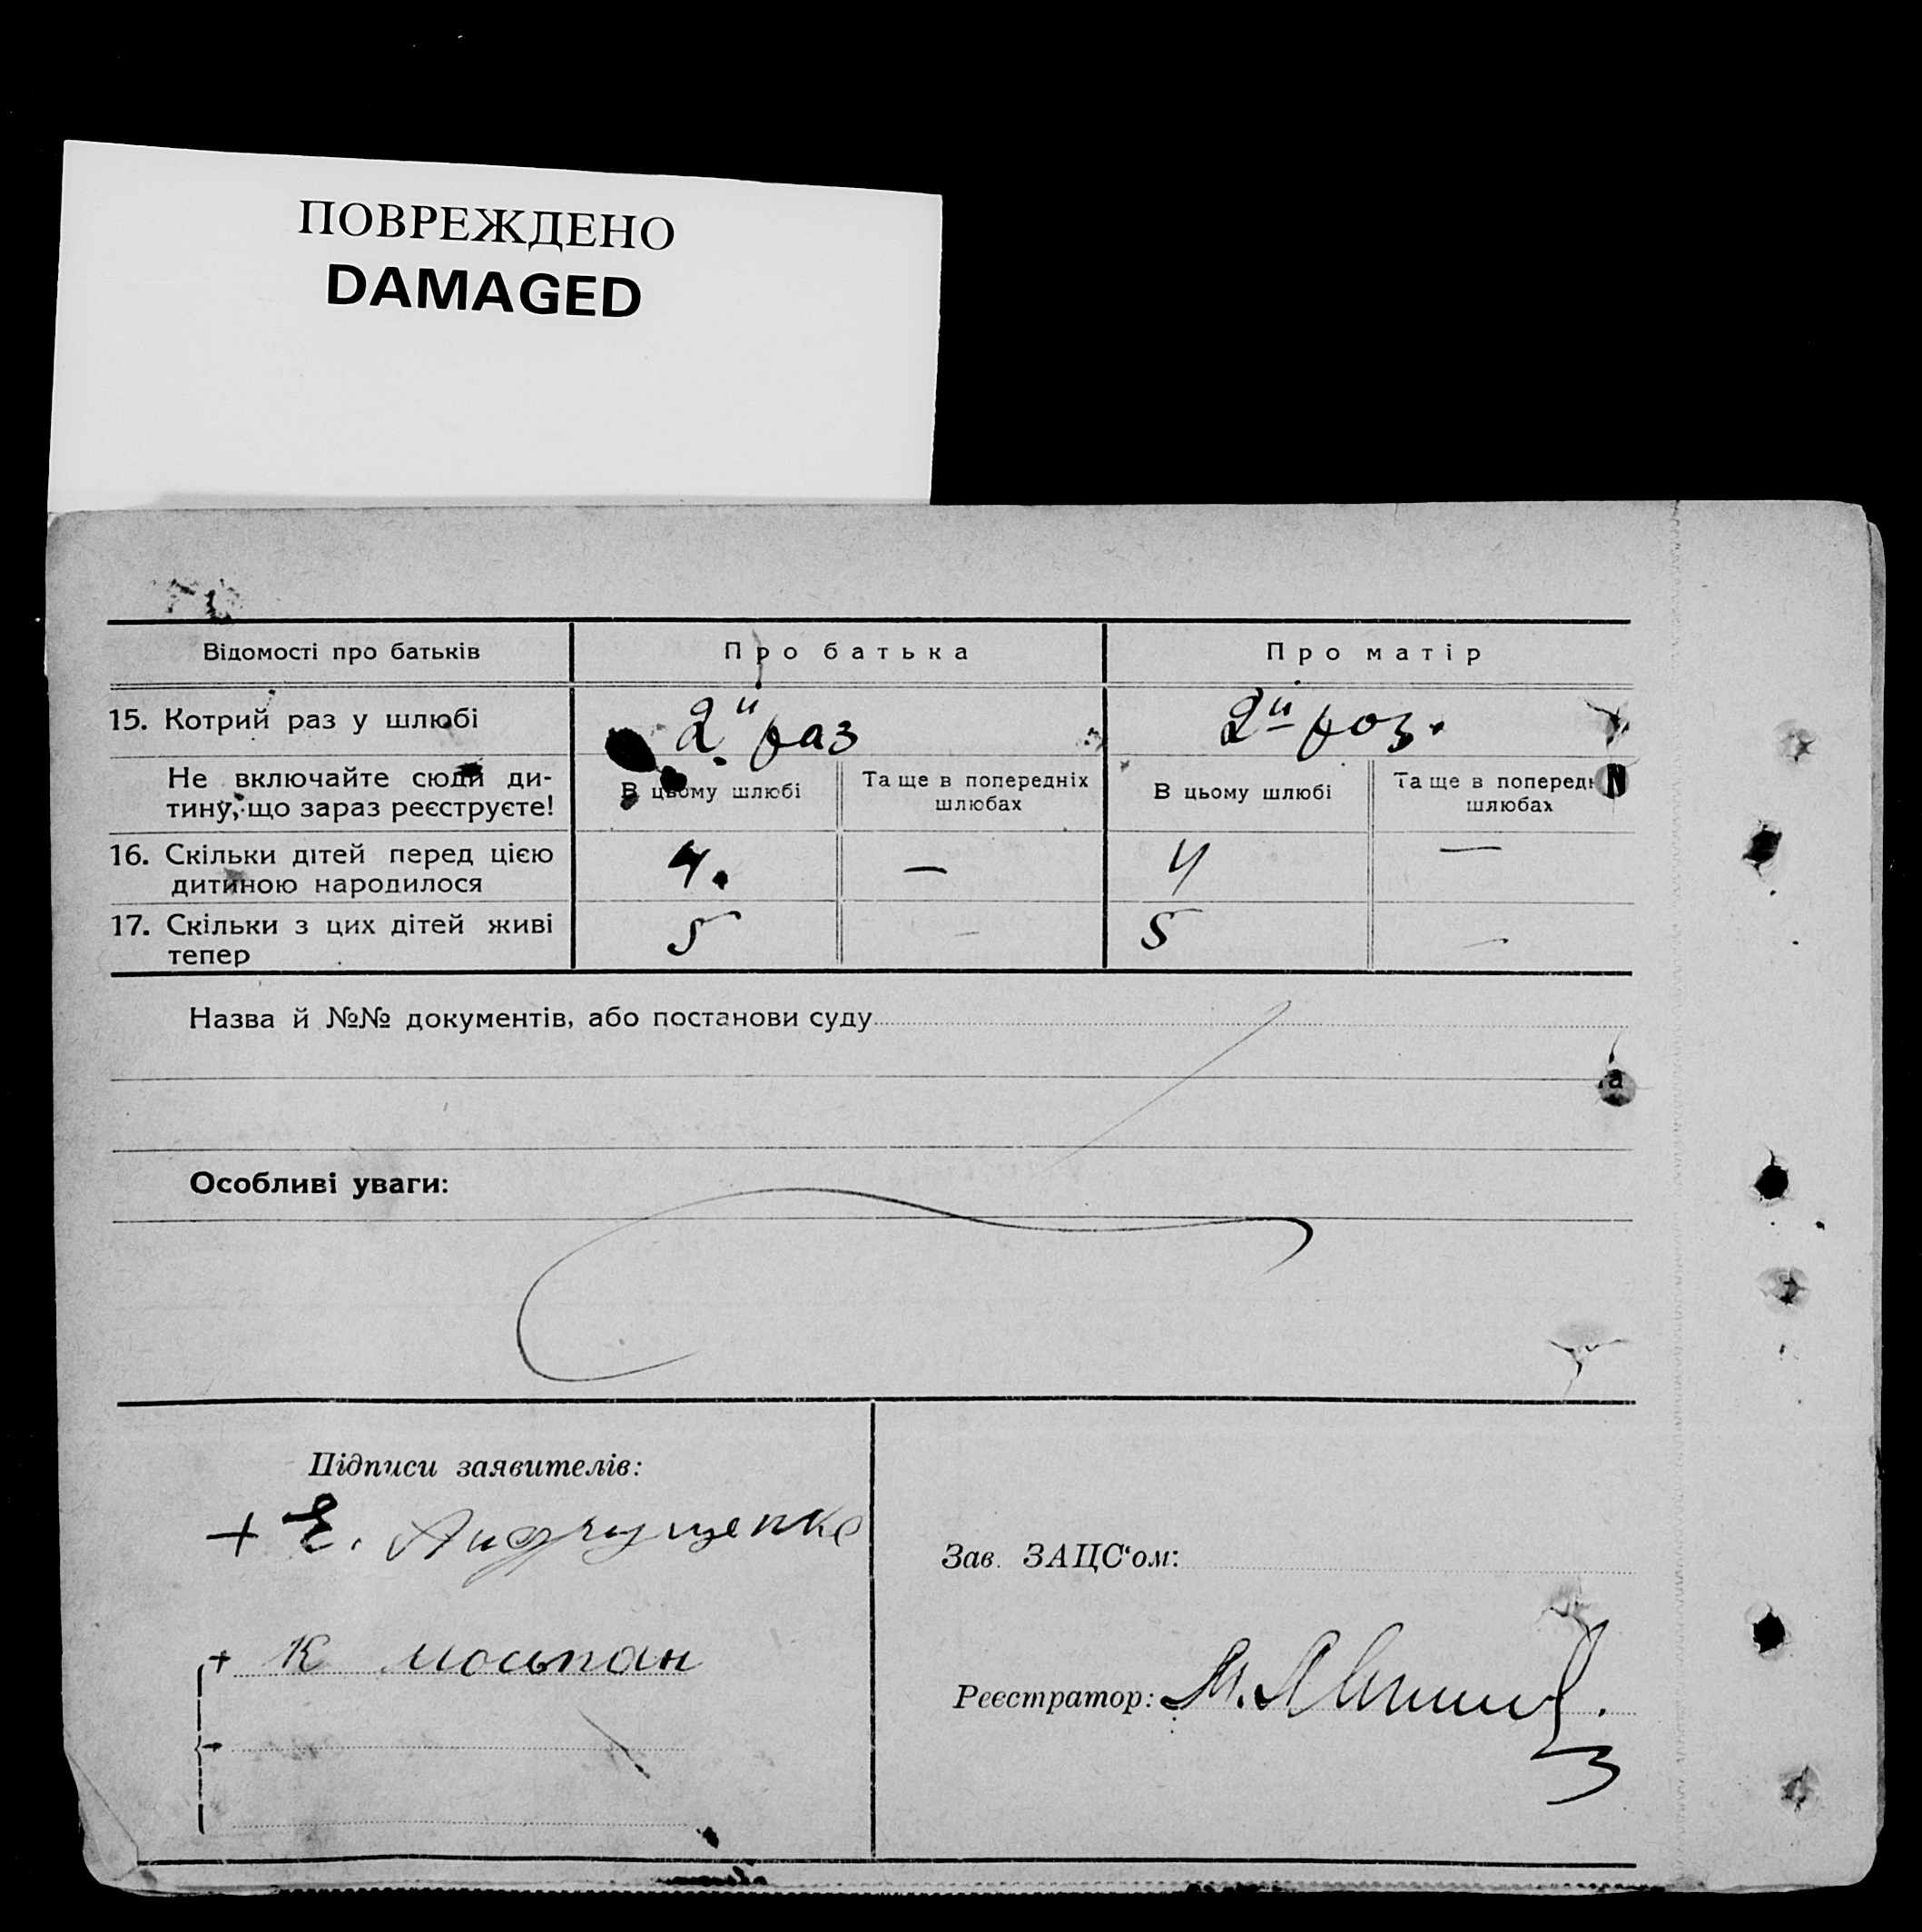 ПОВРЕЖДЕНО
DAMAGED
Відомості про батьків
Про батька
Про матір
15. Котрий раз у шлюбі
2й раз
2й раз.
Не включайте сюди ди-
тину, що зараз реєструєте!
В цьому шлюбі
Та ще в попередніх
шлюбах
В цьому шлюбі
Та ще в попередн
шлюбах
16. Скільки дітей перед цією
дитиною народилося
4.
—
4
—
17. Скільки з цих дітей живі
тепер
5
—
5
—
Назва й №№ документів, або постанови суду
Особливі уваги:
Підписи заявителів:
+ Є. Андрущенко
+ К мостпан
Зав. ЗАЦС‘ом:
Реєстратор: